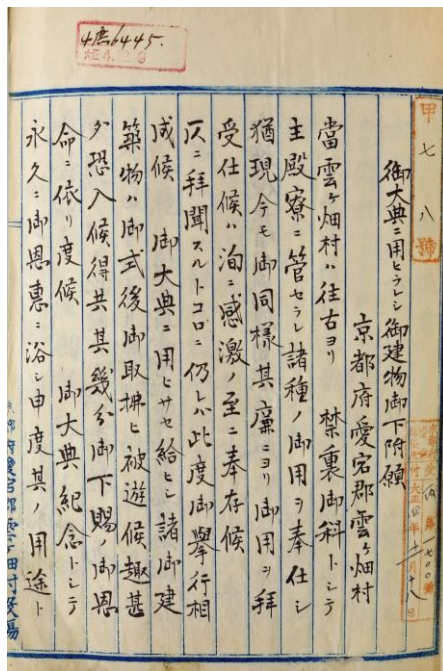 4庶6445.
甲七八號
御大典ニ用ヒラレシ御建物御下附願
京都府愛宕郡雲ヶ畑村
當雲ヶ畑村ハ往古ヨリ 禁裏御料トシテ
主殿寮ニ管セラレ諸種ノ御用ヲ奉仕シ
猶現今モ御同様其廉ニヨリ御用ヲ拜
受仕候ハ洵ニ感激ノ至ニ奉存候
仄ニ拜聞スルトコロニ仍レハ此度御擧行相
成候 御大典ニ用ヒサセ給ヒシ諸御建
築物ハ御式後御取拂ヒ被遊候趣甚
タ恐入候得共其幾分御下賜ノ御恩
命ニ依リ度候 御大典紀念トシテ
永久ニ御恩惠ニ浴シ申度其ノ用途ト
京都府愛宕郡雲ヶ畑村役場